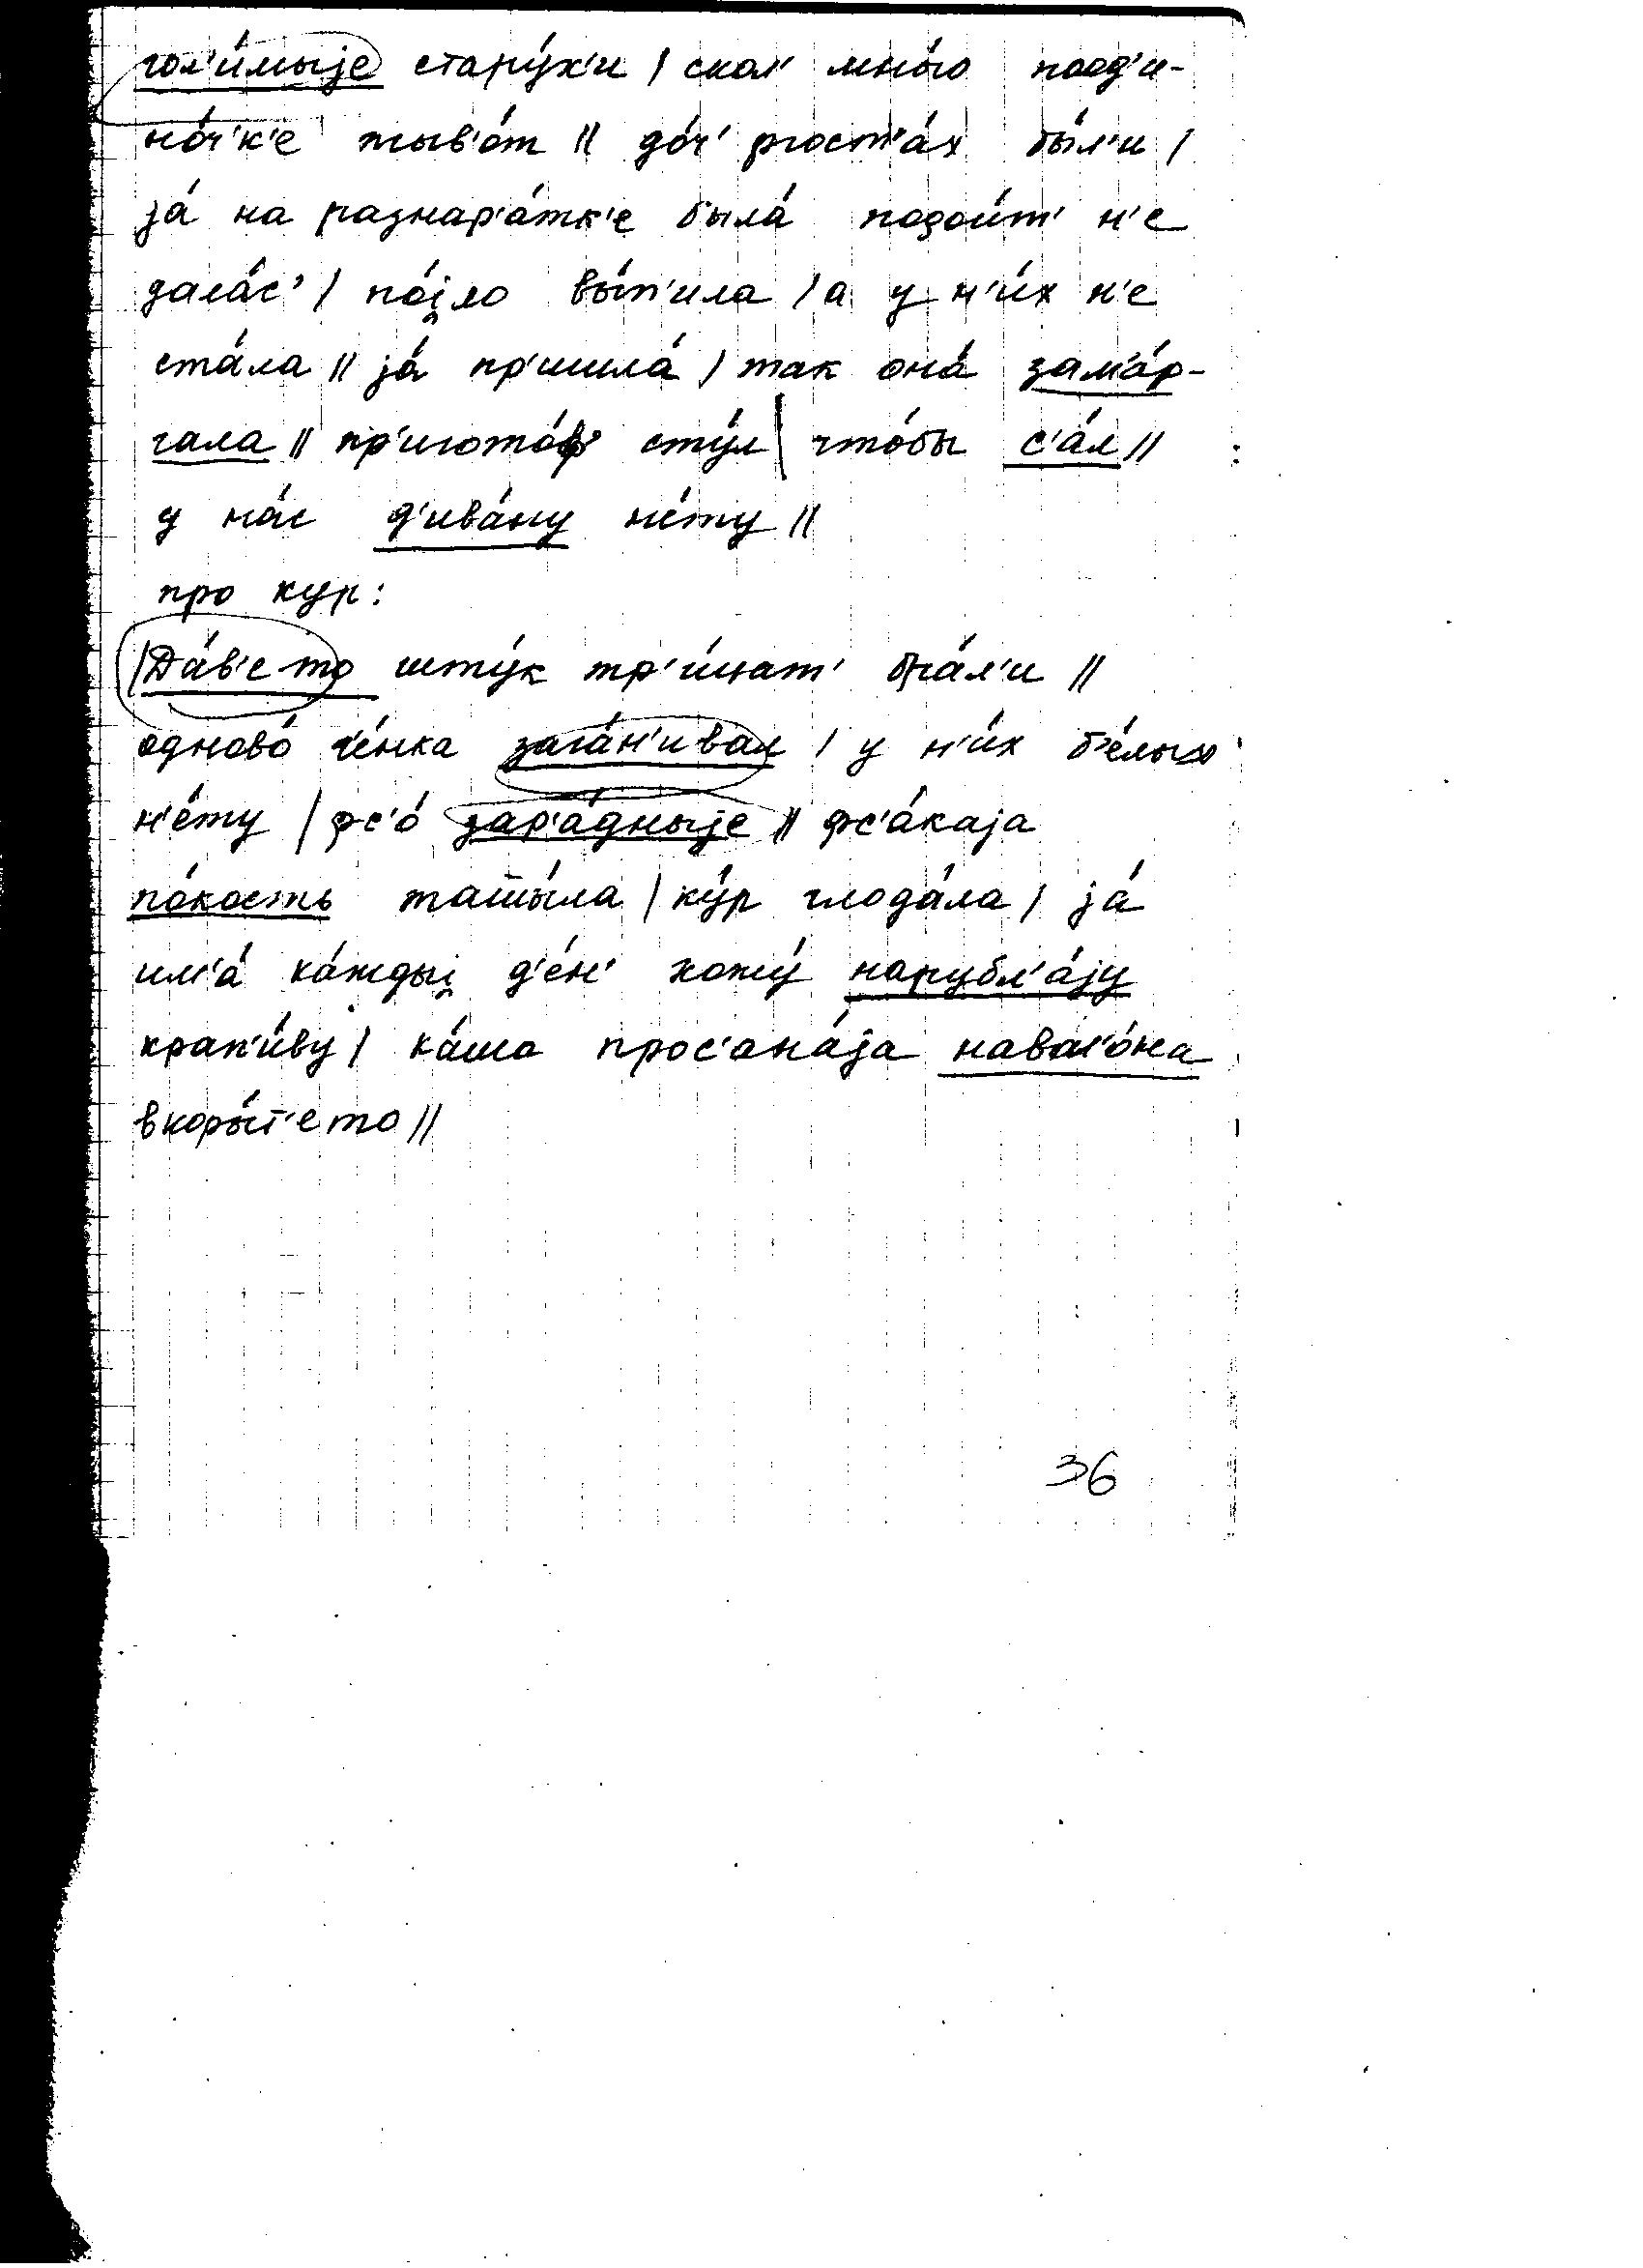 гол'и́мыjе стару́х'и / скол' мно́го поод'и-
но́ч'к'е жыв'о́т // до́ч' ргост'а́х бы́л'и /
jа́ на разнар'а́тк'е была́ подои́т' н'е
дала́с' / по́jло вы́п'ила / а у н'и́х н'е
ста́ла // jа́ пр'ишла́ / так она́ зам'а́р-
гала // пр'игото́ф' сту́л / что́бы с'а́л //
у на́с д'ива́ну не́ту //
про кур:
/Да́в'е то шту́к тр'и́цат' бра́л'и //
одново́ че́нка зага́н'ивал / у н'и́х б'е́лых
н'е́ту / фс'о́ зар'а́дныjе // фс'а́каjа
по́кость ташшы́ла / ку́р глода́ла / jа́
им'а́ ка́ждыj д'е́н' хожу́ нарубл'а́jу
крап'и́ву / ка́ша прос'ана́jа навал'о́на
в коры́т'е то //
36